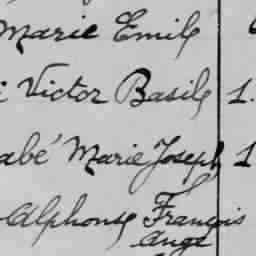 Marie Emile
Victor Basile 1.
abé Marie Joseph 1
Alphonse François
Ange